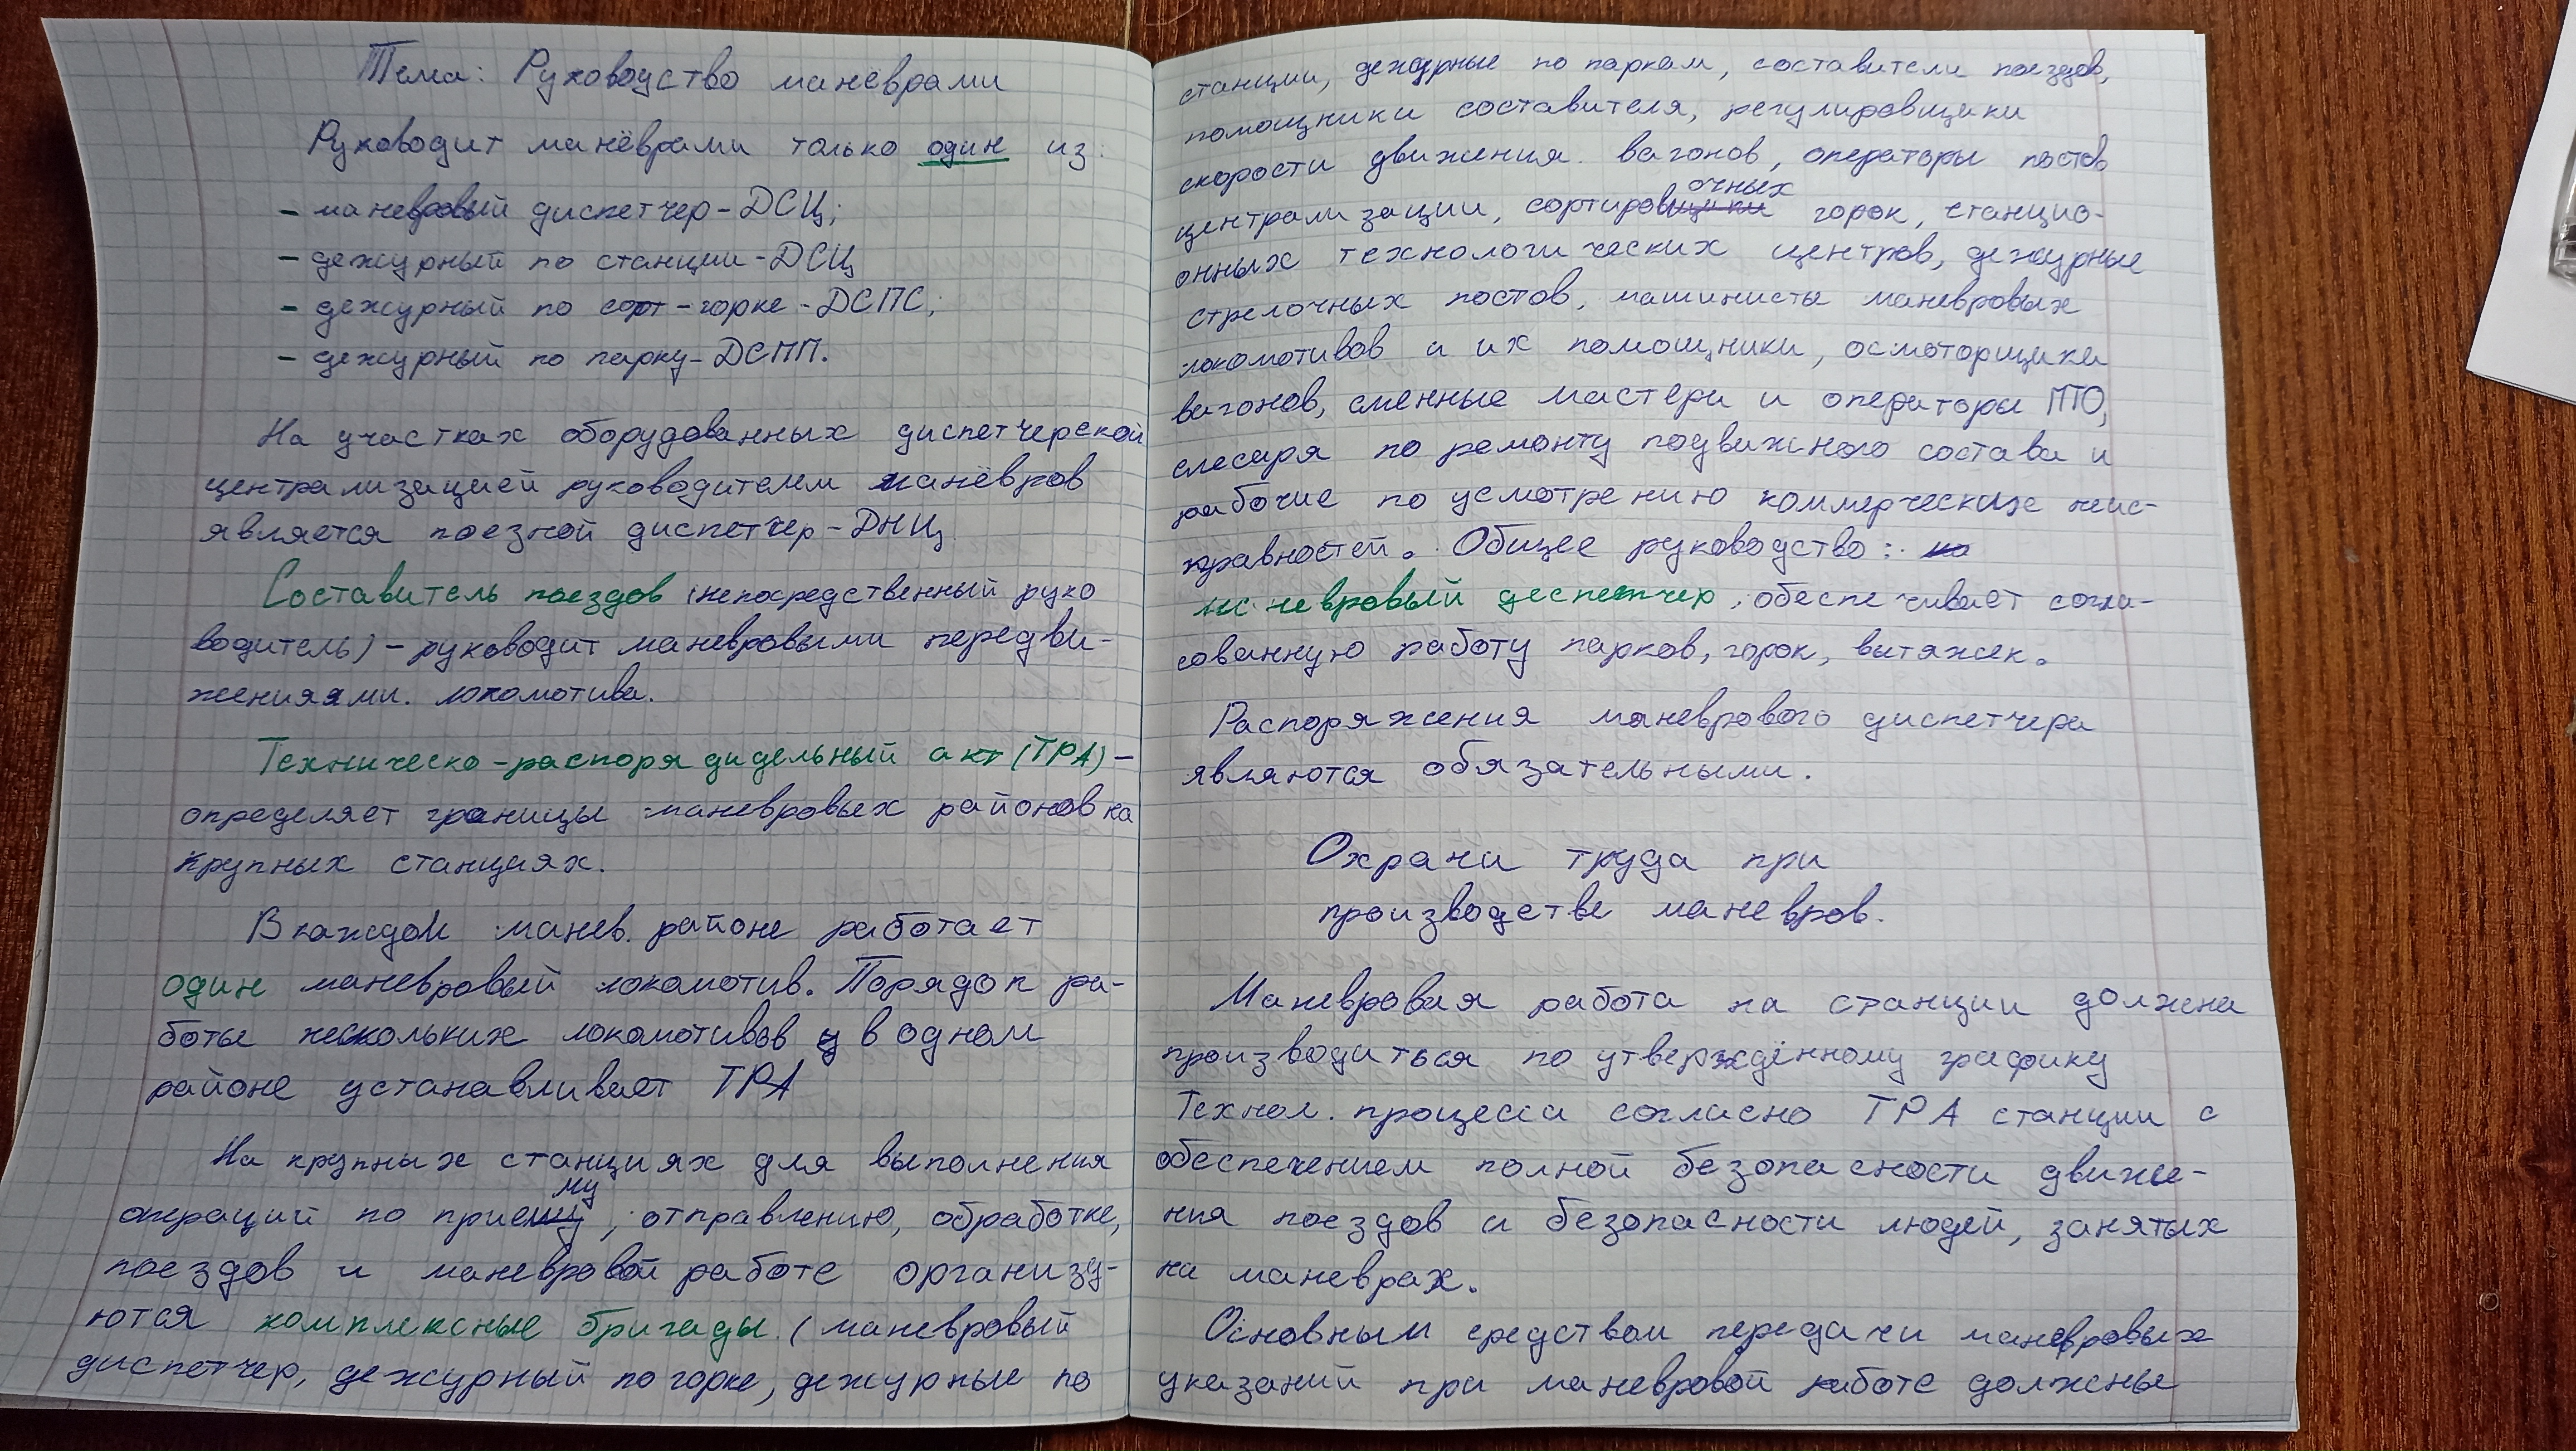 Тема: Руководство маневрами
Руководит манёврами только один из:
- маневровый диспетчер-ДСЦ;
- дежурный по станции-ДСЦ
- дежурный по сорт-горке-ДСПС;
- дежурный по парку-ДСПП.
На участках оборудованных диспетчерской
централизацией руководителем манёвров
является поезной диспетчер-ДНЦ
Составитель поездов (непосредственный руко
водитель) - руководит маневровыми передви-
жениями. локомотива.
Техническо-распорядидельный акт (ТРА) -
определяет границы маневровых районов на
крупных станциях.
В каждом манев. районе работает
один маневровый локомотив. Порядок ра-
боты нескольких локомотивов в одном
районе устанавливает ТРА
На крупных станциях для выполнения
операций по приему, отправлению, обработке,
поездов и маневровой работе организу-
ются комплексные бригады (маневровый
диспетчер, дежурный по горке, дежурные по
станции, дежурные по паркам, составители поездов,
помощники составителя, регулировщики
скорости движения вагонов, операторы постов
централизации, сортировочных горок, станцио-
онных технологических центров, дежурные
стрелочных постов, машинисты маневровых
локомотивов и их помощники, осмоторщики
вагонов, сменные мастера и операторы ПТО,
слесаря по ремонту подвижного состава и
рабочие по усмотрению коммерческих неис-
правностей. Общее руководство:
маневровый деспетчер, обеспечивает согла-
сованную работу парков, горок, вытяжек.
Распоряжения маневрового диспетчера
являются обязательными.
Охрана труда при
производстве маневров.
Маневровая работа на станции должна
производиться по утверждённому графику
Технол. процесса согласно ТРА станции с
обеспечением полной безопасности движе-
ния поездов и безопасности людей, занятых
на маневрах.
Основным средством передачи маневровых
указаний при маневровой работе должны